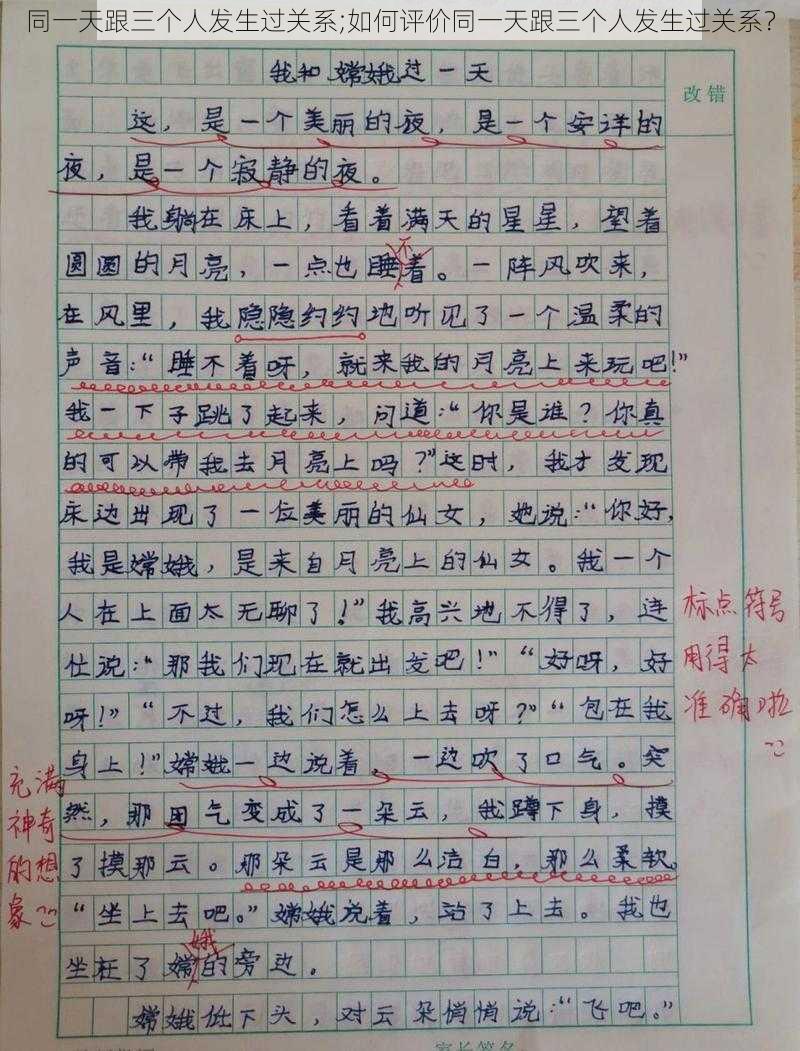 同一天跟三个人发生过关系;如何评价同一天跟三个人发生过关系?
改错
我和嫦娥过一天
这，是一个美丽的夜，是一个安详的
夜，是一个寂静的夜。
我躺在床上，看着满天的星星，望着
圆圆的月亮，一点也睡不着。一阵风吹来，
在风里，我隐隐约约地听见了一个温柔的
声音:“睡不着呀，就来我的月亮上来玩吧!”
我一下子跳了起来，问道:“你是谁?你真
的可以带我去月亮上吗?”这时，我才发现
床边出现了一位美丽的仙女，她说:“你好，
我是嫦娥，是来自月亮上的仙女。我一个
人在上面太无聊了!”我高兴地不得了，连
忙说:“那我们现在就出发吧!”“好呀，好
呀!”“不过，我们怎么上去呀?”“包在我
身上!”嫦娥一边说着，一边吹了口气。突
然，那团气变成了一朵云，我蹲下身，摸
了摸那云。那朵云是那么洁白，那么柔软。
“坐上去吧。”嫦娥说着，站了上去。我也
坐在了嫦娥的旁边。
嫦娥低下头，对云朵悄悄说:“飞吧。”
标点符号
用得太
准确啦
充满
神奇
的想
象
家长签名